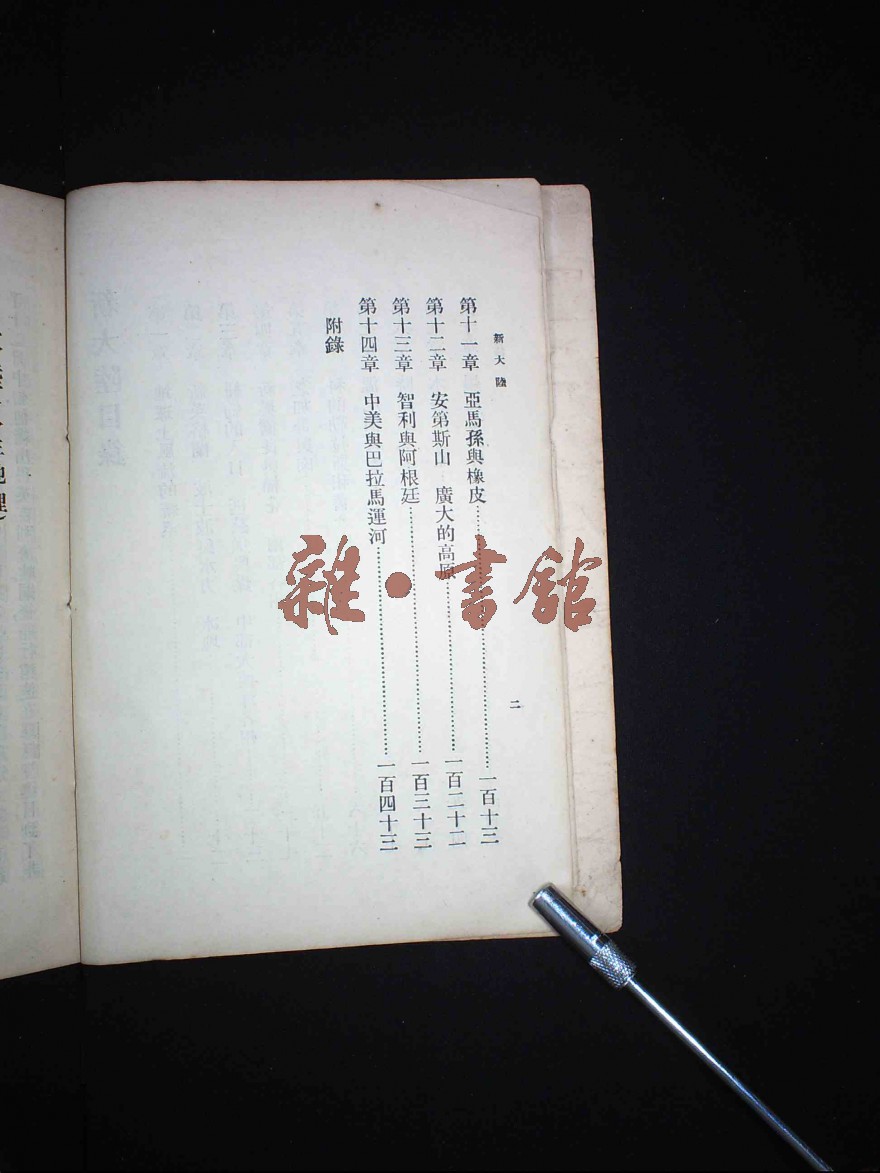 新大陸
二
第十一章　亞馬孫與橡皮………一百十三
第十二章　安第斯山　廣大的高原………一百二十二
第十三章　智利與阿根廷………一百三十三
第十四章　中美與巴拉馬運河………一百四十三
附錄
雜·書館